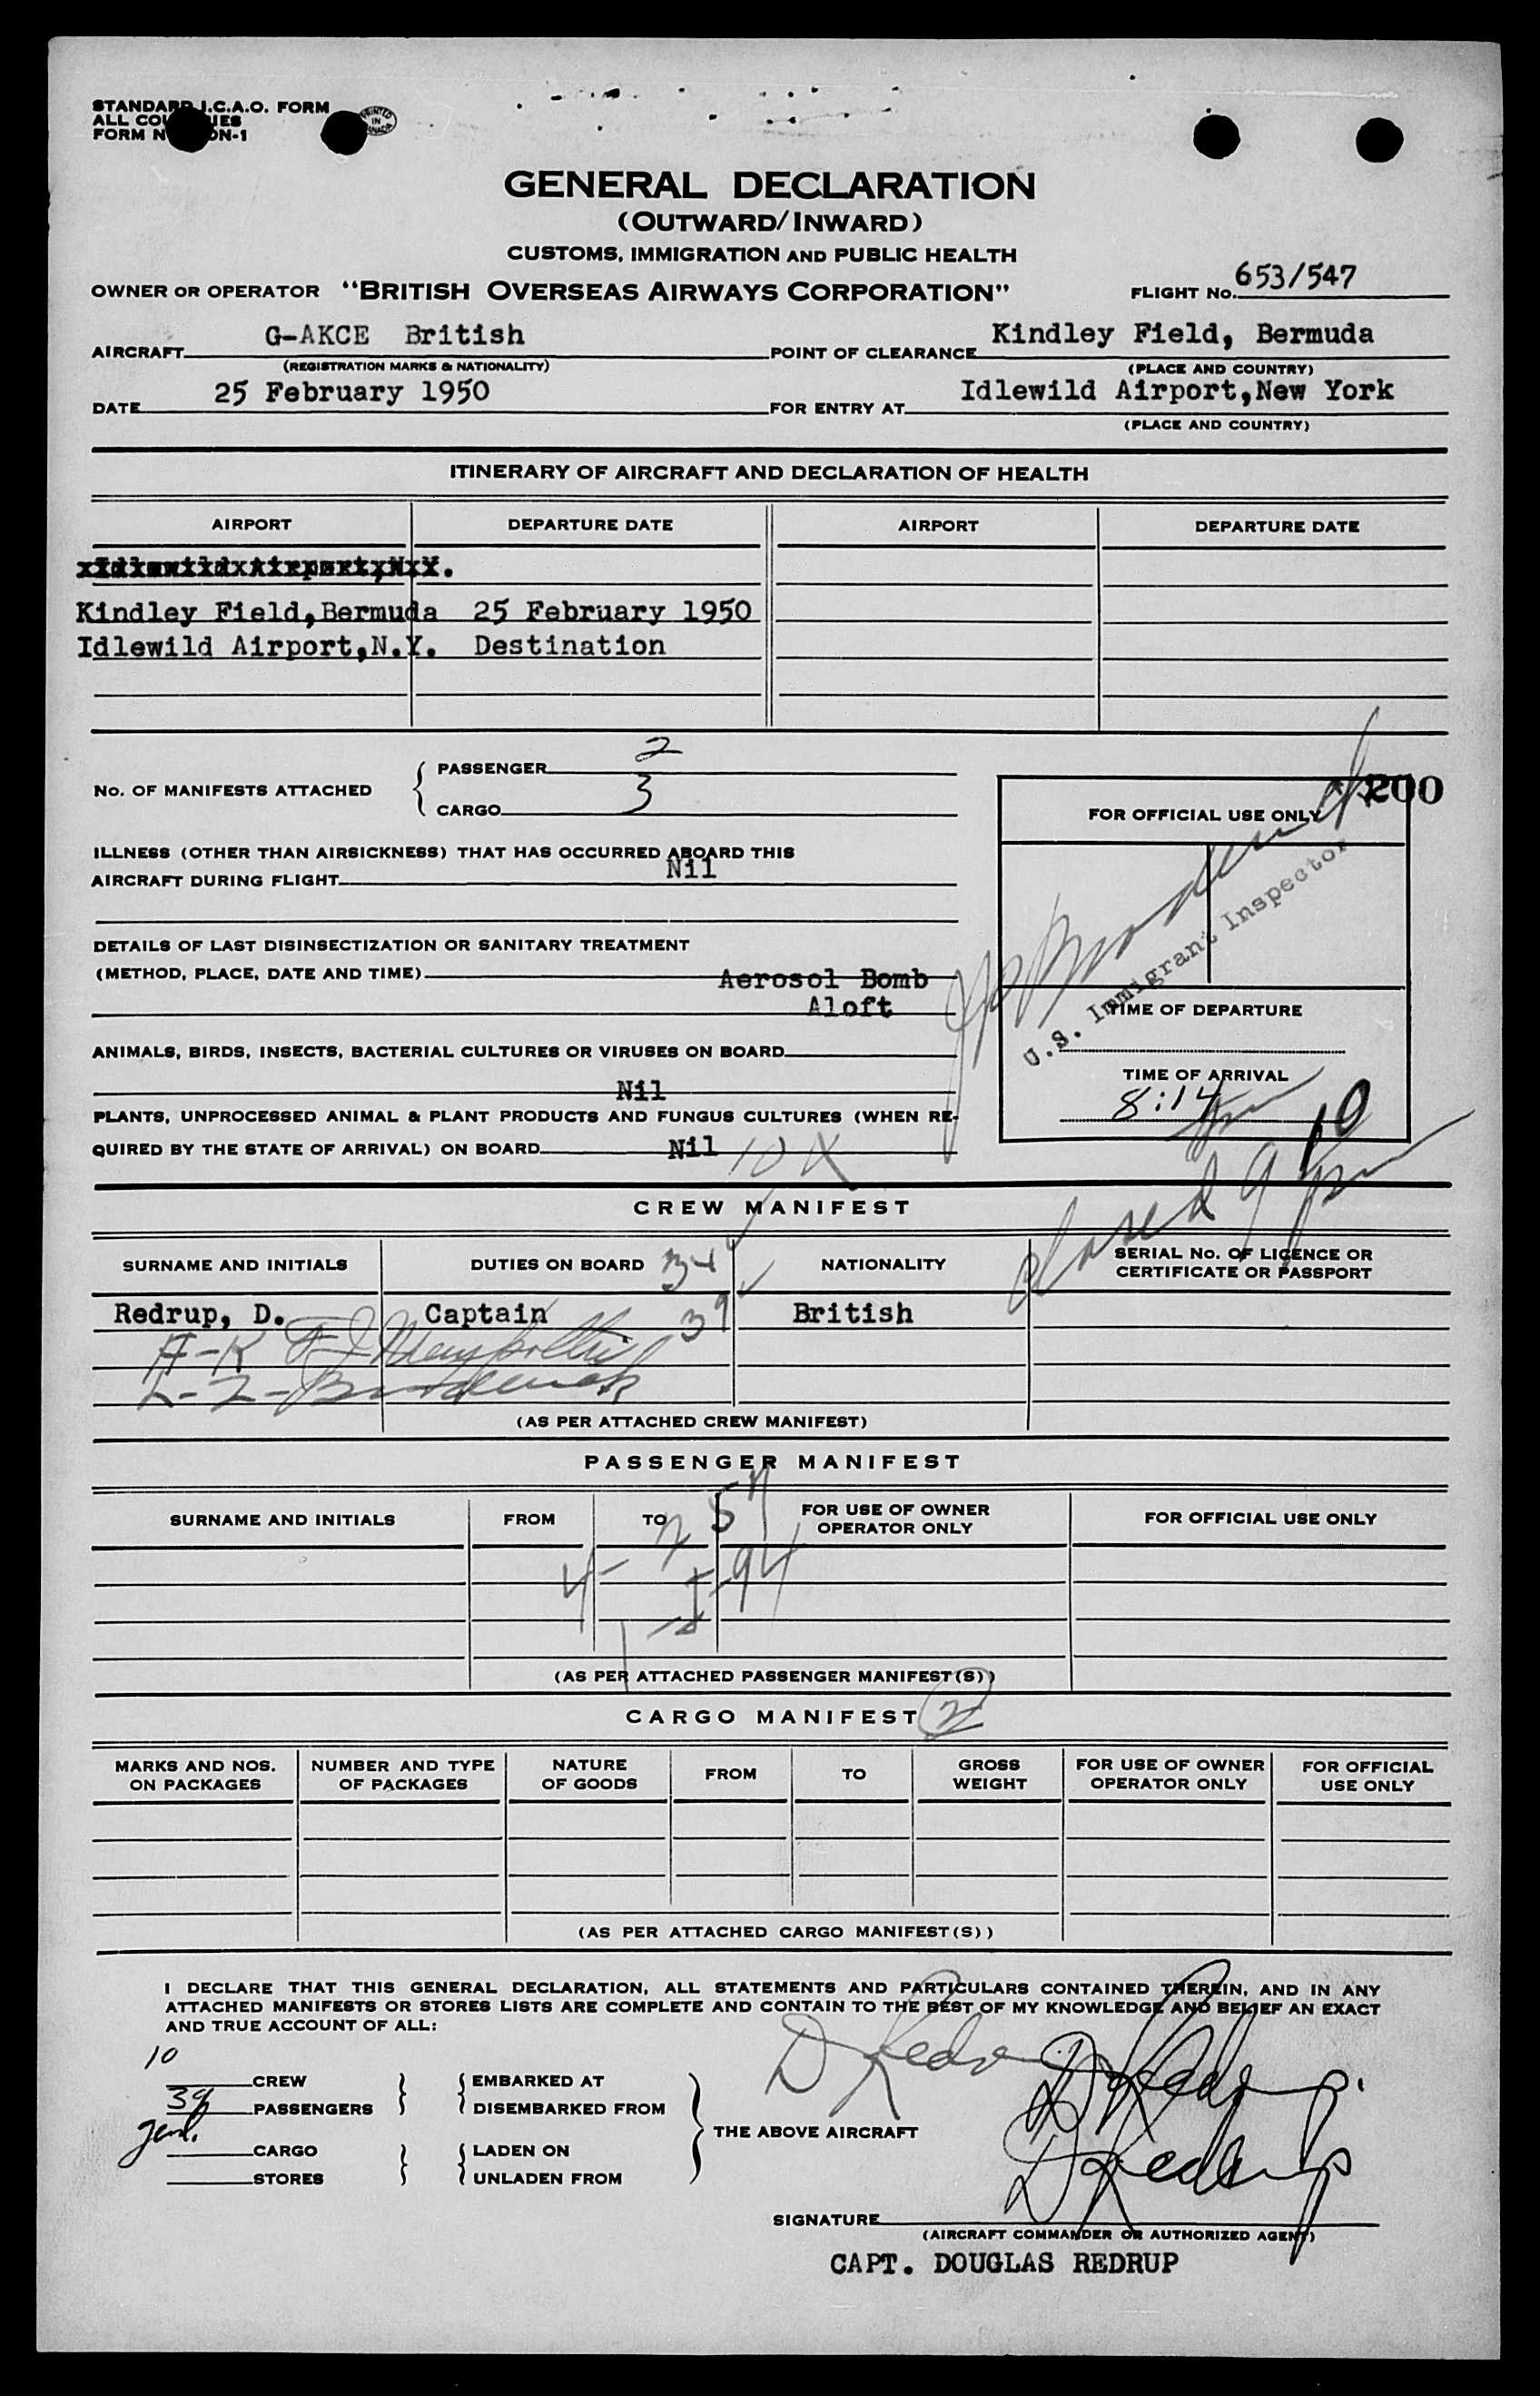 STANDARD I.C.A.O. FORM
ALL
FORM
PRINTED IN CANADA
GENERAL DECLARATION
(OUTWARD/INWARD)
CUSTOMS, IMMIGRATION AND PUBLIC HEALTH
OWNER OR OPERATOR "BRITISH OVERSEAS AIRWAYS CORPORATION" FLIGHT No. 653/547
AIRCRAFT G-AKCE British POINT OF CLEARANCE Kindley Field, Bermuda
(REGISTRATION MARKS & NATIONALITY) (PLACE AND COUNTRY)
DATE 25 February 1950 FOR ENTRY AT Idlewild Airport,New York
(PLACE AND COUNTRY)
ITINERARY OF AIRCRAFT AND DECLARATION OF HEALTH
AIRPORT DEPARTURE DATE AIRPORT DEPARTURE DATE
Kindley Field,Bermuda 25 February 1950
Idlewild Airport,N.Y. Destination
No. OF MANIFESTS ATTACHED
PASSENGER 2
CARGO 3
ILLNESS (OTHER THAN AIRSICKNESS) THAT HAS OCCURRED ABOARD THIS
AIRCRAFT DURING FLIGHT Nil
DETAILS OF LAST DISINSECTIZATION OR SANITARY TREATMENT
(METHOD, PLACE, DATE AND TIME) Aerosol Bomb
Aloft
ANIMALS, BIRDS, INSECTS, BACTERIAL CULTURES OR VIRUSES ON BOARD
Nil
PLANTS, UNPROCESSED ANIMAL & PLANT PRODUCTS AND FUNGUS CULTURES (WHEN RE-
QUIRED BY THE STATE OF ARRIVAL) ON BOARD Nil 10
200
FOR OFFICIAL USE ONLY
U.S. Immigrant Inspector
TIME OF DEPARTURE
TIME OF ARRIVAL
8:14 pm
10
closed 9 pm
CREW MANIFEST
SURNAME AND INITIALS DUTIES ON BOARD 34 NATIONALITY SERIAL No. OF LICENCE OR
CERTIFICATE OR PASSPORT
Redrup, D. Captain 39 British
(AS PER ATTACHED CREW MANIFEST)
PASSENGER MANIFEST
SURNAME AND INITIALS FROM TO FOR USE OF OWNER
OPERATOR ONLY FOR OFFICIAL USE ONLY
I-94
(AS PER ATTACHED PASSENGER MANIFEST(S))
CARGO MANIFEST 2
MARKS AND NOS.
ON PACKAGES
NUMBER AND TYPE
OF PACKAGES
NATURE
OF GOODS
FROM
TO
GROSS
WEIGHT
FOR USE OF OWNER
OPERATOR ONLY
FOR OFFICIAL
USE ONLY
(AS PER ATTACHED CARGO MANIFEST(S))
I DECLARE THAT THIS GENERAL DECLARATION, ALL STATEMENTS AND PARTICULARS CONTAINED THEREIN, AND IN ANY
ATTACHED MANIFESTS OR STORES LISTS ARE COMPLETE AND CONTAIN TO THE BEST OF MY KNOWLEDGE AND BELIEF AN EXACT
AND TRUE ACCOUNT OF ALL:
10 CREW
39 PASSENGERS
genl. CARGO
STORES
EMBARKED AT
DISEMBARKED FROM
LADEN ON
UNLADEN FROM
THE ABOVE AIRCRAFT
D Redrup
D Redrup.
D Redrup
SIGNATURE
(AIRCRAFT COMMANDER OR AUTHORIZED AGENT)
CAPT. DOUGLAS REDRUP